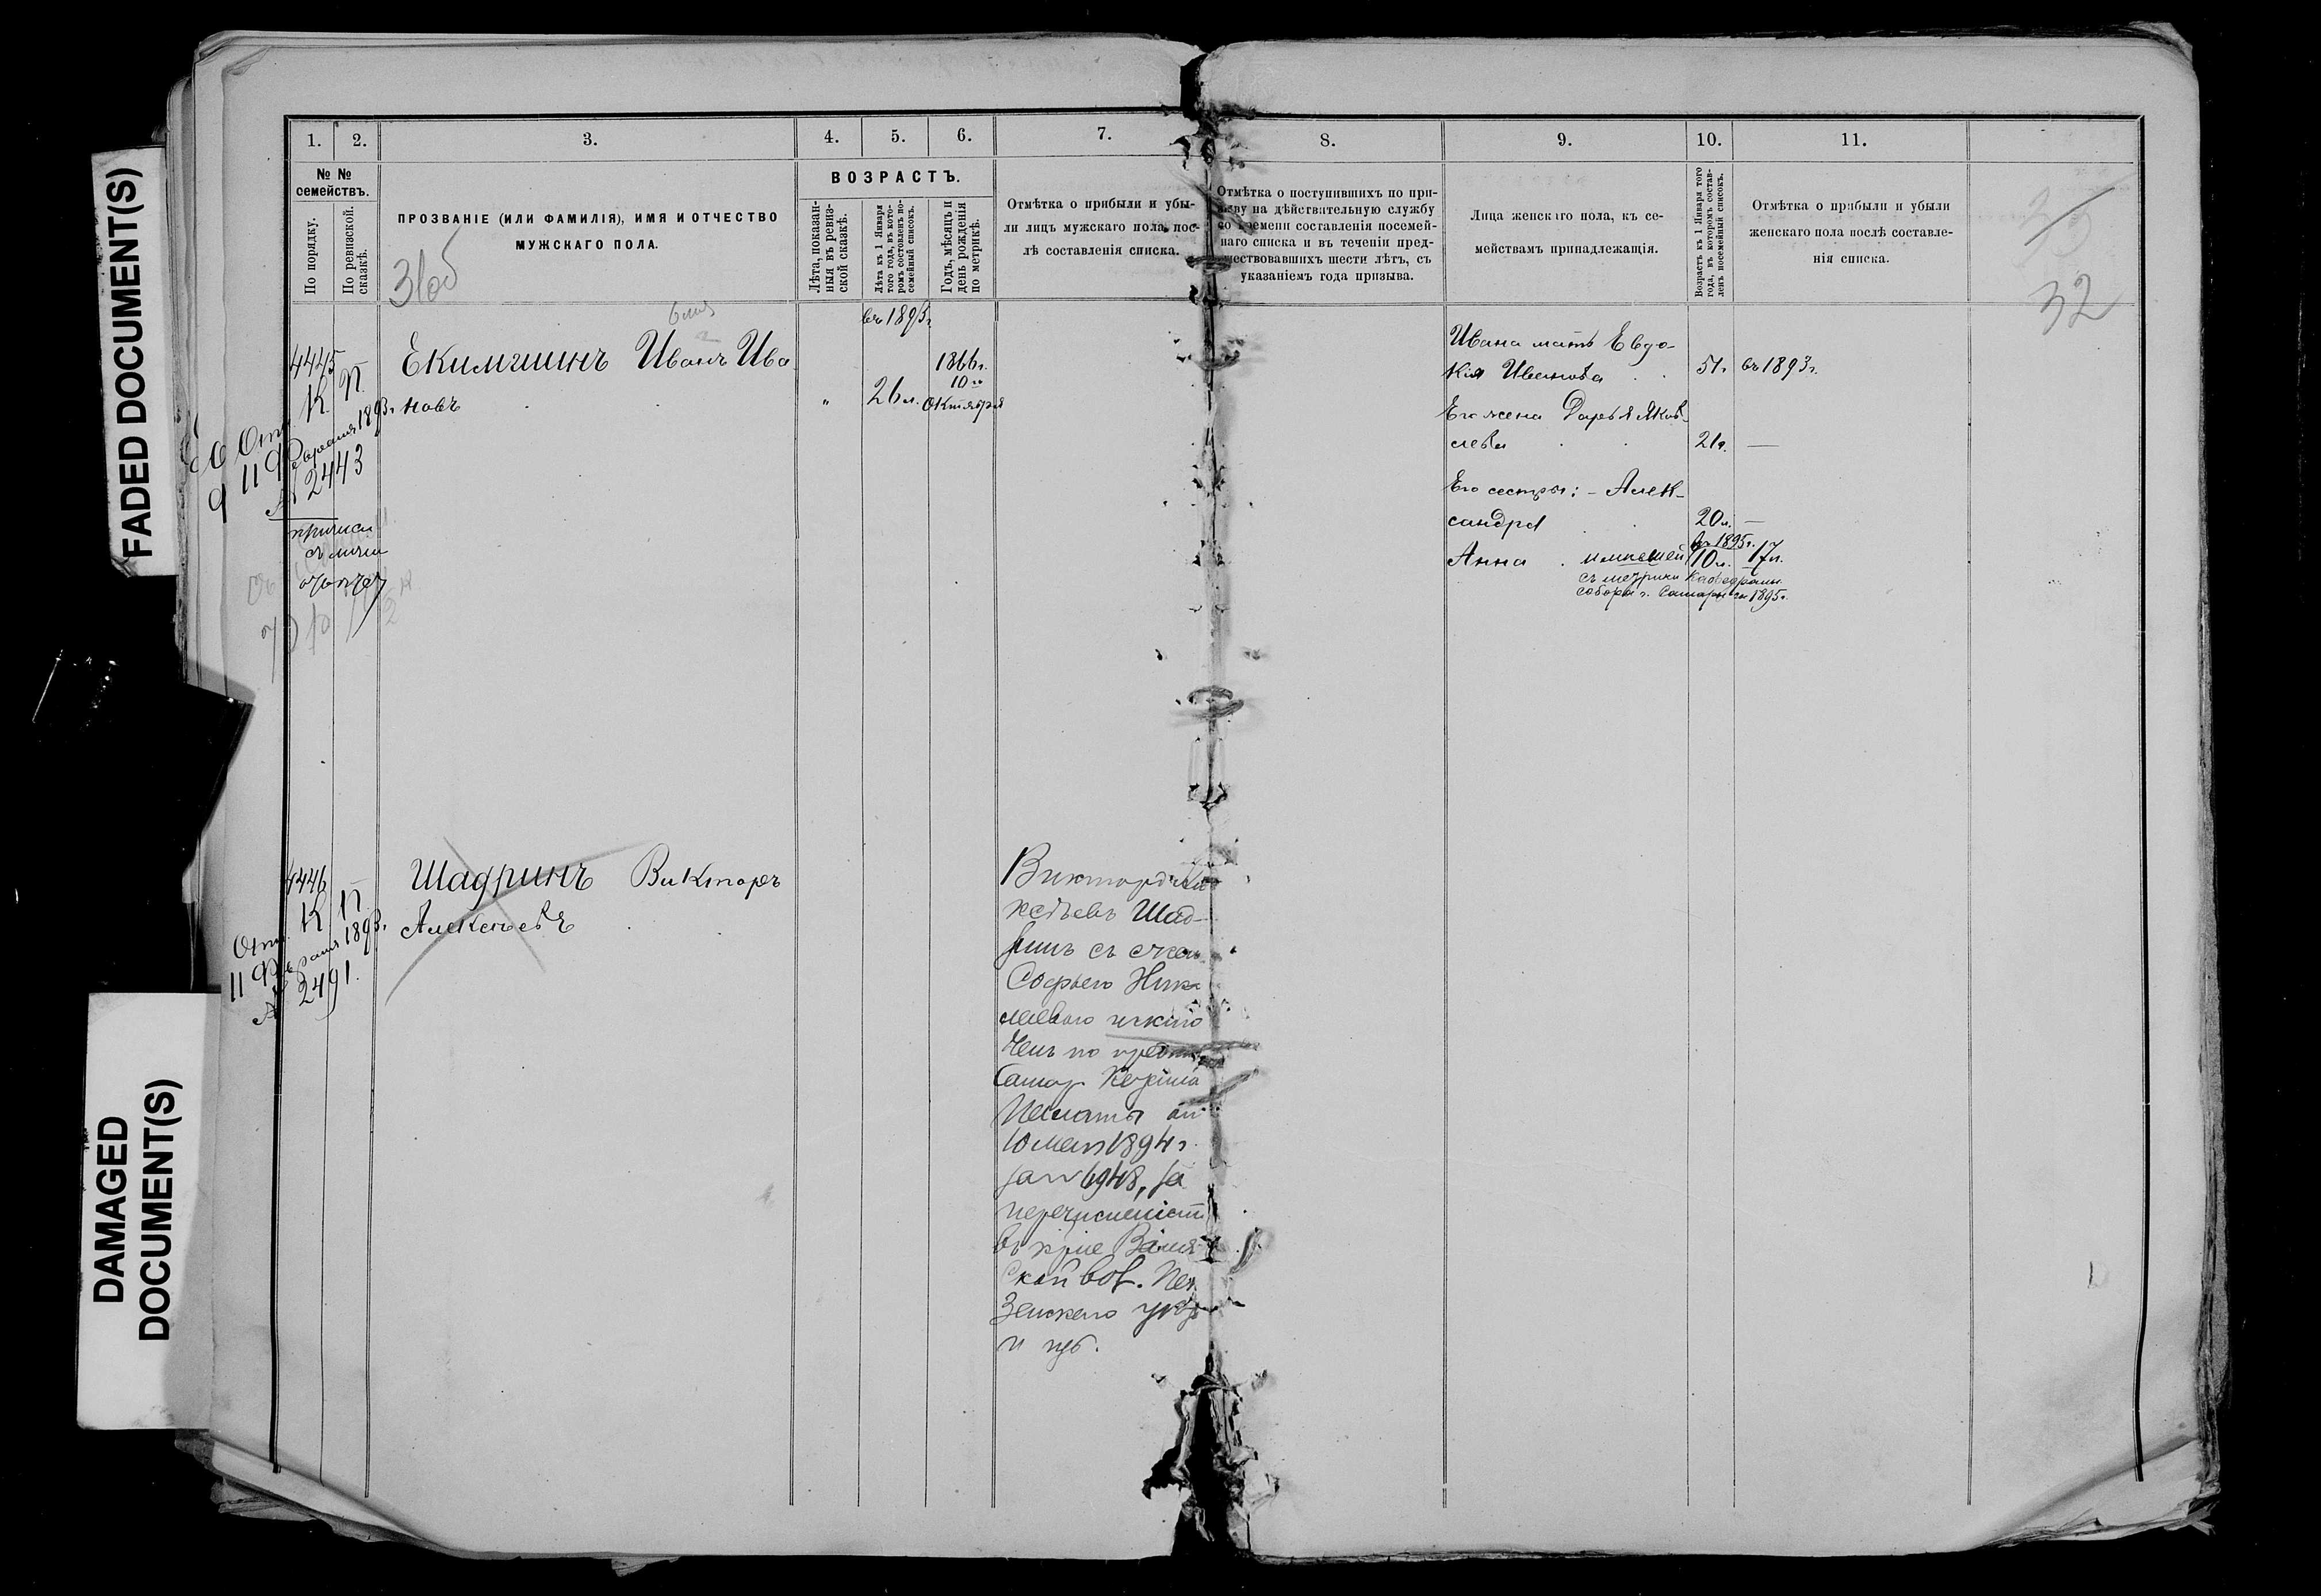 FADED DOCUMENT(S)
DAMAGED
DOCUMENT(S)
1.
2.
3.
4.
5.
6.
7.
8.
9.
10.
11.
№ №
семействъ.
По порядку.
По ревизской
сказкѣ.
ПРОЗВАНІЕ (ИЛИ ФАМИЛІЯ), ИМЯ И ОТЧЕСТВО
МУЖСКАГО ПОЛА.
ВОЗРАСТЪ.
Лѣта, показан-
ныя въ ревиз-
ской сказкѣ.
Лѣта къ 1 Января
того года, въ кото-
ромъ составленъ по-
семейный списокъ.
Годъ, мѣсяцъ и
день рожденія
по метрикѣ.
Отмѣтка о прибыли и убы-
ли лицъ мужскаго пола, пос-
лѣ составленія списка.
Отмѣтка о поступившихъ по при-
зыву на дѣйствительную службу
со времени составленія посемей-
наго списка и въ теченіи пред-
шествовавшихъ шести лѣтъ, съ
указаніемъ года призыва.
Лица женскаго пола, къ се-
мействамъ принадлежащія.
Возрастъ къ 1 Января того
года, въ которомъ состав-
ленъ посемейный списокъ.
Отмѣтка о прибыли и убыли
женскаго пола послѣ составле-
нія списка.
31об
33
32
4445
К. П.
11 Февраля 1893г.
№ 2443
Екимшинъ Иванъ Ива
новъ
въ 1893г.
"
26 л.
1866г.
10го
Октября
Ивана мать Евдо-
кія Иванова 51г. въ 1893г.
Его жена Дарья Яков-
лева 21г. —
Его сестры: - Алек-
сандра 20л. —
въ 1895г.
Анна 10л. 17л.
съ метрики Кафедральн.
собора г. Самары 1895г.
4446
К. П.
Отн.
11 Февраля 1893г.
№ 2491.
Шадринъ Викторъ
Алексѣевъ
Викторъ Але
ксѣевъ Шад-
ринъ съ женою
Софьею Нико
лаевою исклю
ченъ по
Самар. Казенной
Палаты отъ
10 мая 1894г.
за № 6948, за
перечисленіемъ
въ
ской вол. Пен
зенскаго уѣзда
и губ.